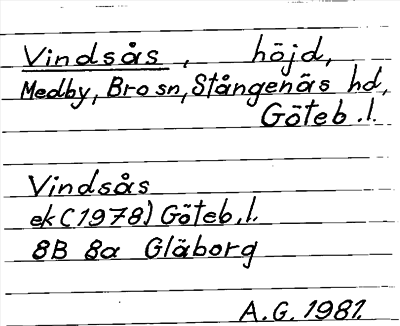 Vindsås, höjd,
Medby, Bro sn, Stångenäs hd,
Göteb.l.
Vindsås
ek (1978) Göteb.l.
8B 8a Gläborg
A.G. 1981.